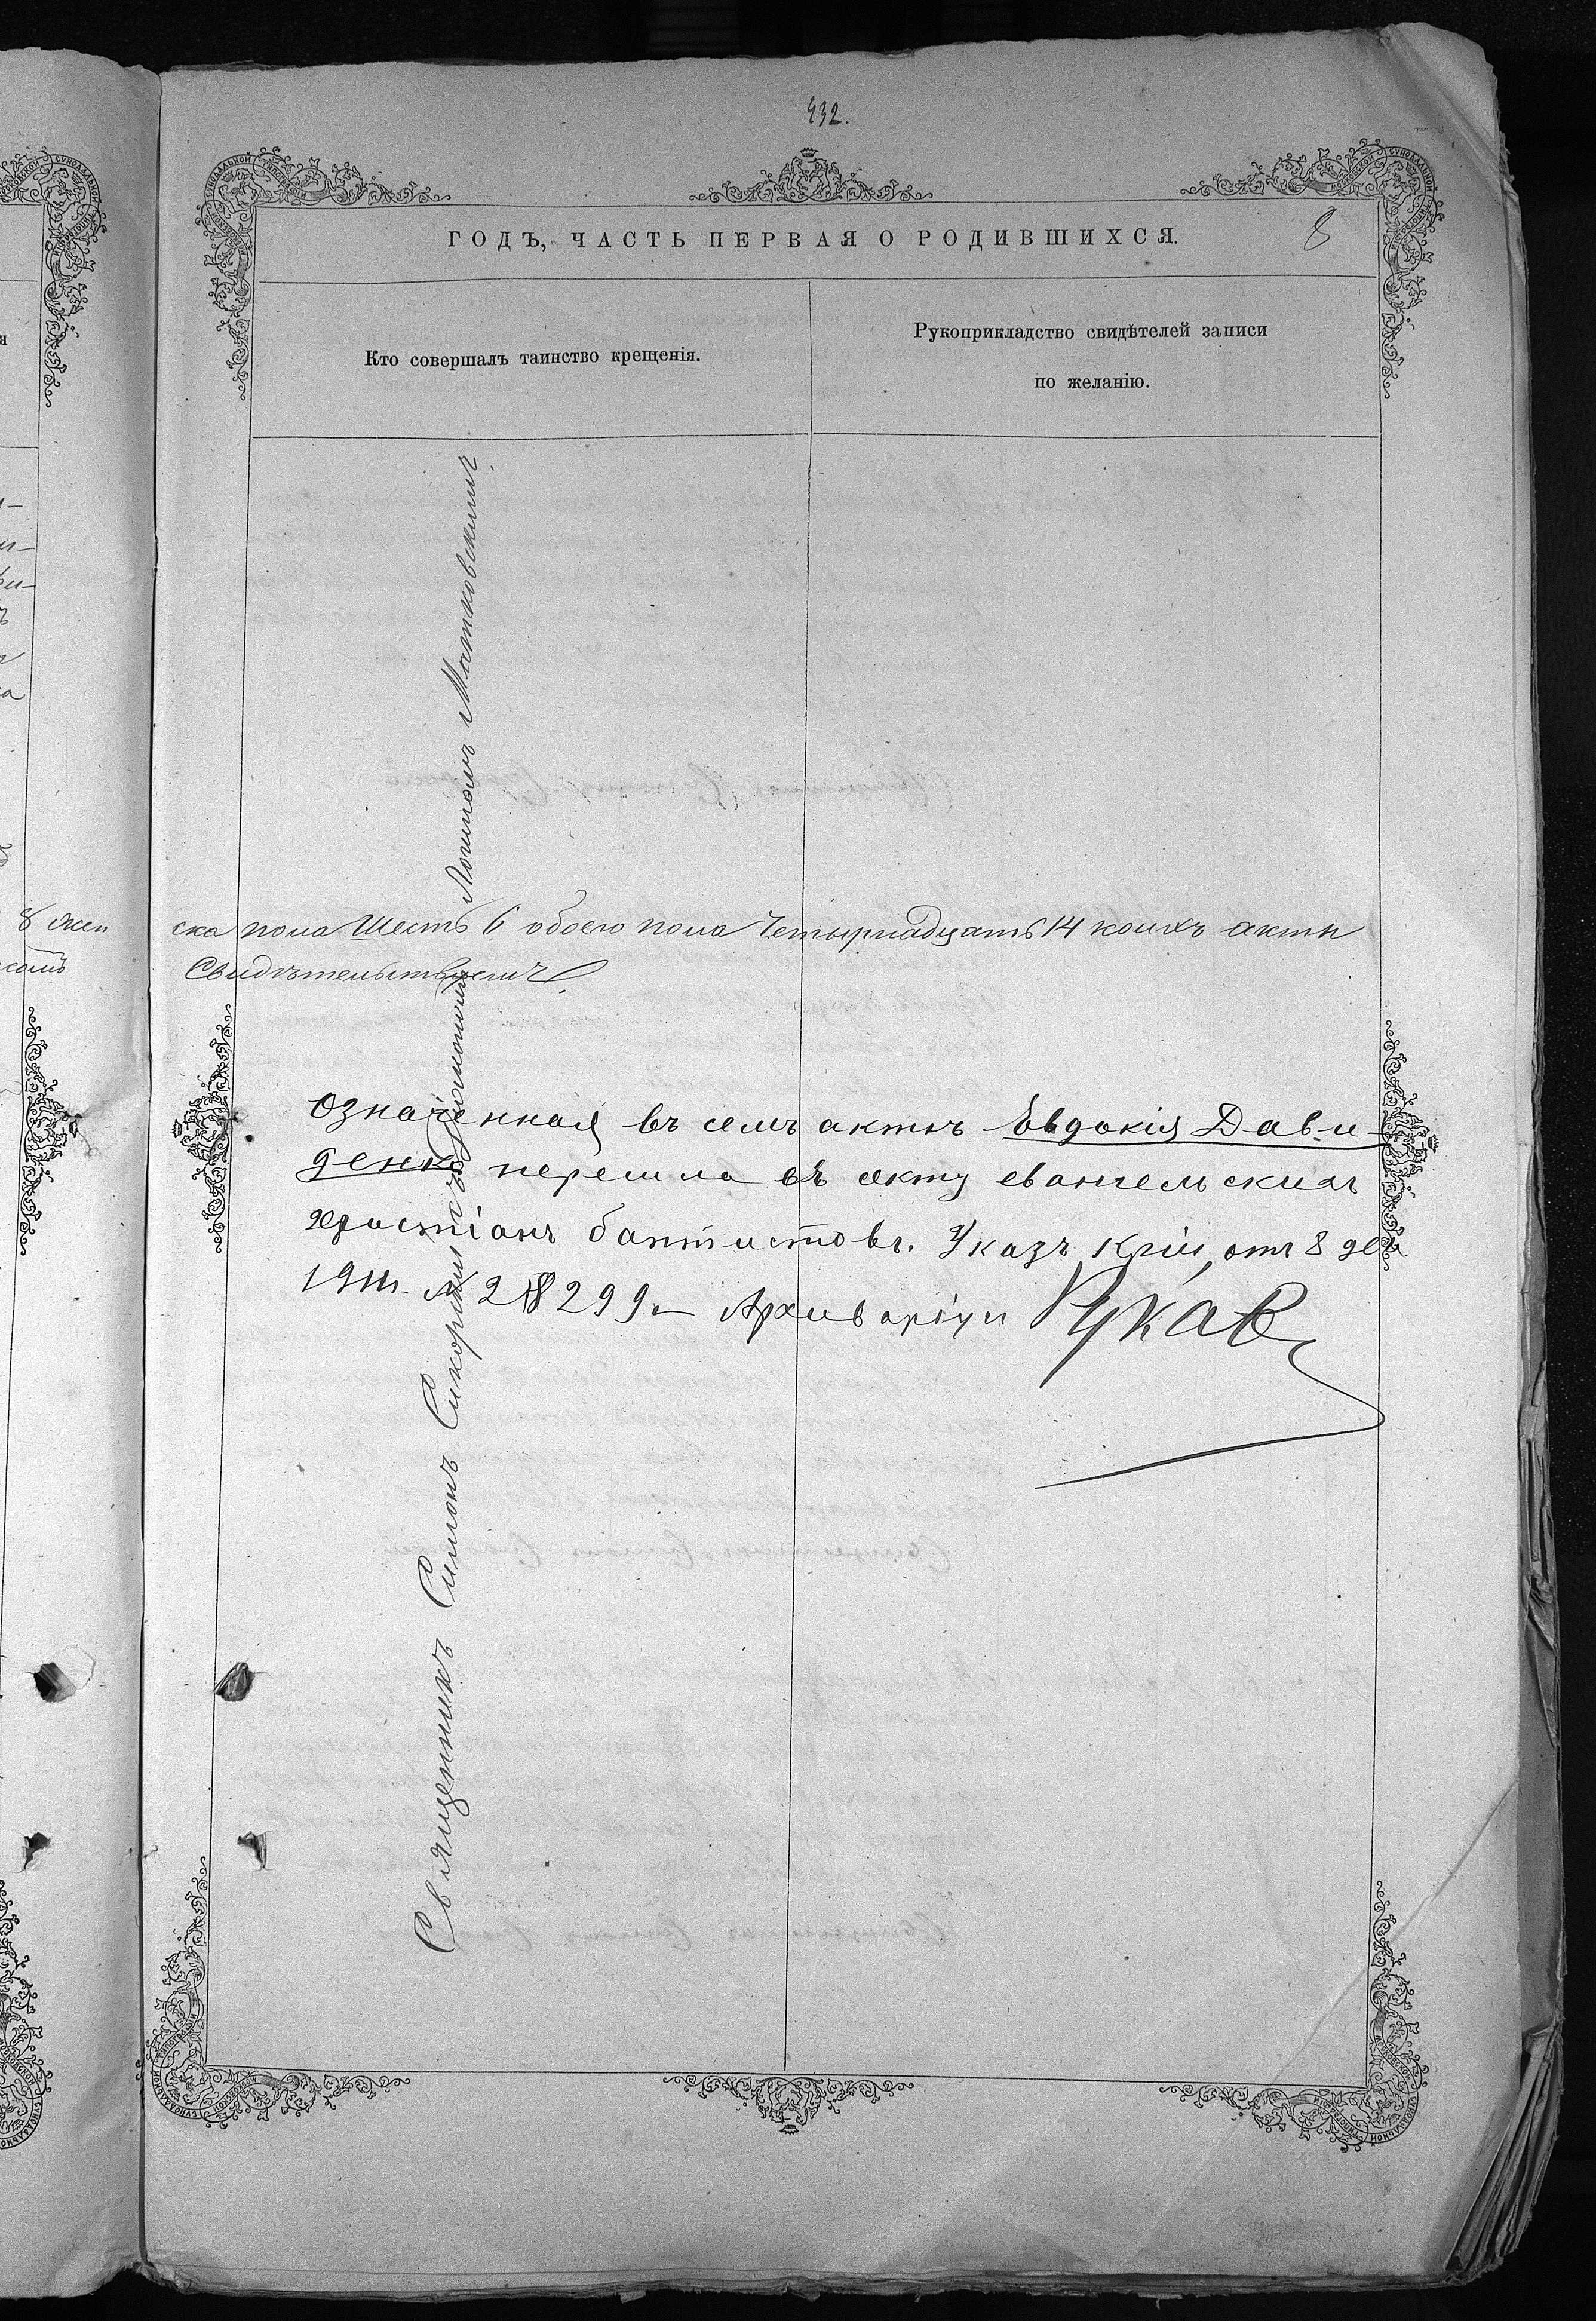 432.
ГОДЪ, ЧАСТЬ ПЕРВАЯ О РОДИВШИХСЯ.
8
Кто совершалъ таинство крещенія.
Рукоприкладство свидѣтелей записи
по желанію.
Священникъ Симонъ Сикорскій съ Логиномъ Матковскимъ
8 жен
ска пола Шесть 6 обоего пола Четырнадцать 14 коихъ акты
Свидѣтельствуемъ
Означенная въ семъ актѣ Евдокія Дави-
денко перешла въ секту евангельскихъ
христіанъ баптистовъ. Указъ Кіи, отъ 8 дек
1911. № 28299 – Архиваріусъ Рукав